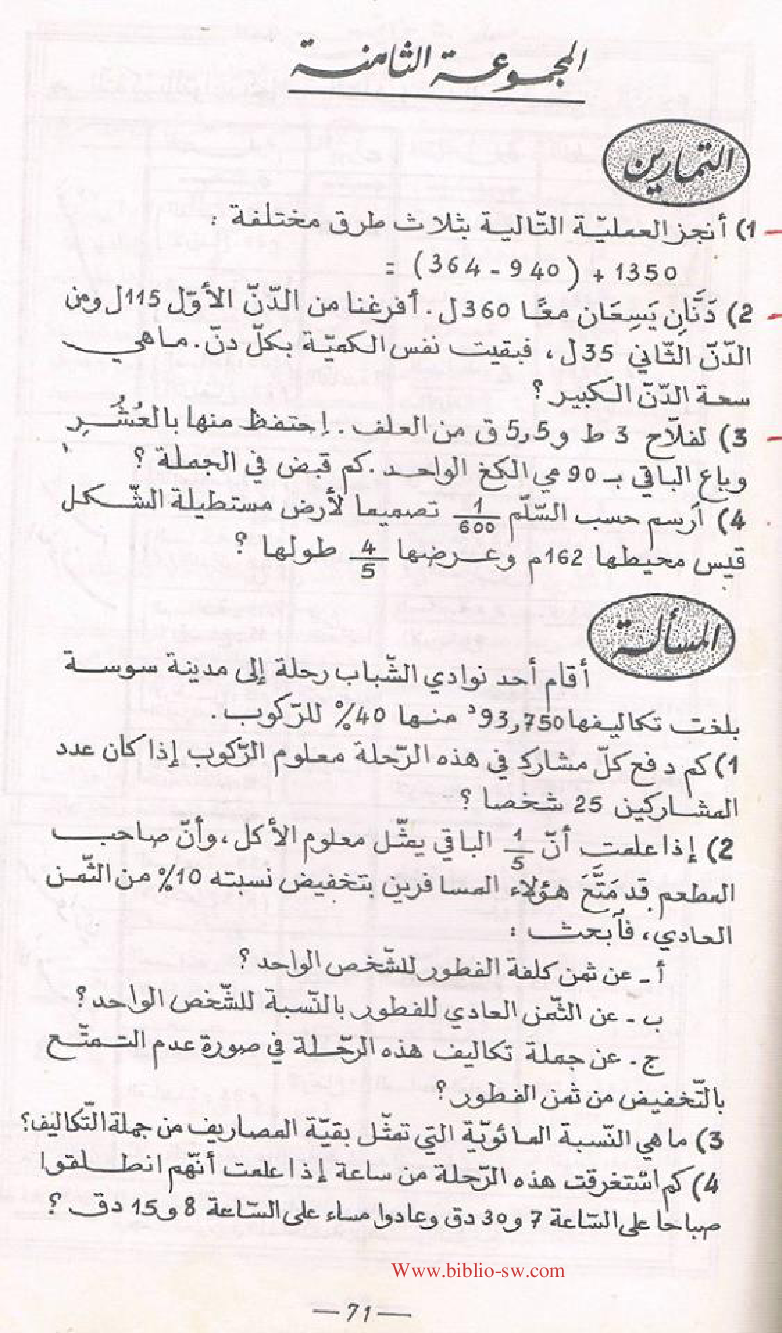 المجموعة الثامنة
التمارين
1) أنجز العمليّة التّالية بثلاث طرق مختلفة :
1350 + (940 - 364) =
2) دَنَّانِ يَسِعَانِ معًا 360 ل. أفرغنا من الدّنّ الأوّل 115 ل ومن
الدّنّ الثّاني 35 ل، فبقيت نفس الكميّة بكلّ دنّ. ماهي
سعة الدّنّ الكبير؟
3) لفلاّح 3 ط و 5,5 ق من العلف. اِحتفظ منها بالعُشُرِ
وباع الباقي بـ 90 مي الكغ الواحد. كم قبض في الجملة ؟
4) اُرسم حسب السّلّم 1/600 تصميما لأرض مستطيلة الشّكل
قيس محيطها 162م وعرضها 4/5 طولها ؟
المسألة
أقام أحد نوادي الشّباب رحلة إلى مدينة سوسة
بلغت تكاليفها 93,750د منها 40% للرّكوب.
1) كم دفع كلّ مشارك في هذه الرّحلة معلوم الرّكوب إذا كان عدد
المشاركين 25 شخصا ؟
2) إذا علمت أنّ 1/5 الباقي يمثّل معلوم الأكل، وأنّ صاحب
المطعم قد مَتَّعَ هؤلاء المسافرين بتخفيض نسبته 10% من الثّمن
العادي، فاَبحث :
أ - عن ثمن كلفة الفطور للشّخص الواحد ؟
ب - عن الثّمن العادي للفطور بالنّسبة للشّخص الواحد ؟
ج - عن جملة تكاليف هذه الرّحلة في صورة عدم التّمتّع
بالتّخفيض من ثمن الفطور ؟
3) ما هي النّسبة المائويّة التي تمثّل بقيّة المصاريف من جملة التّكاليف؟
4) كم اُستغرقت هذه الرّحلة من ساعة إذا علمت أنّهم انطلقوا
صباحا على السّاعة 7 و30 دق وعادوا مساء على السّاعة 8 و15 دق ؟
Www.biblio-sw.com
— 71 —